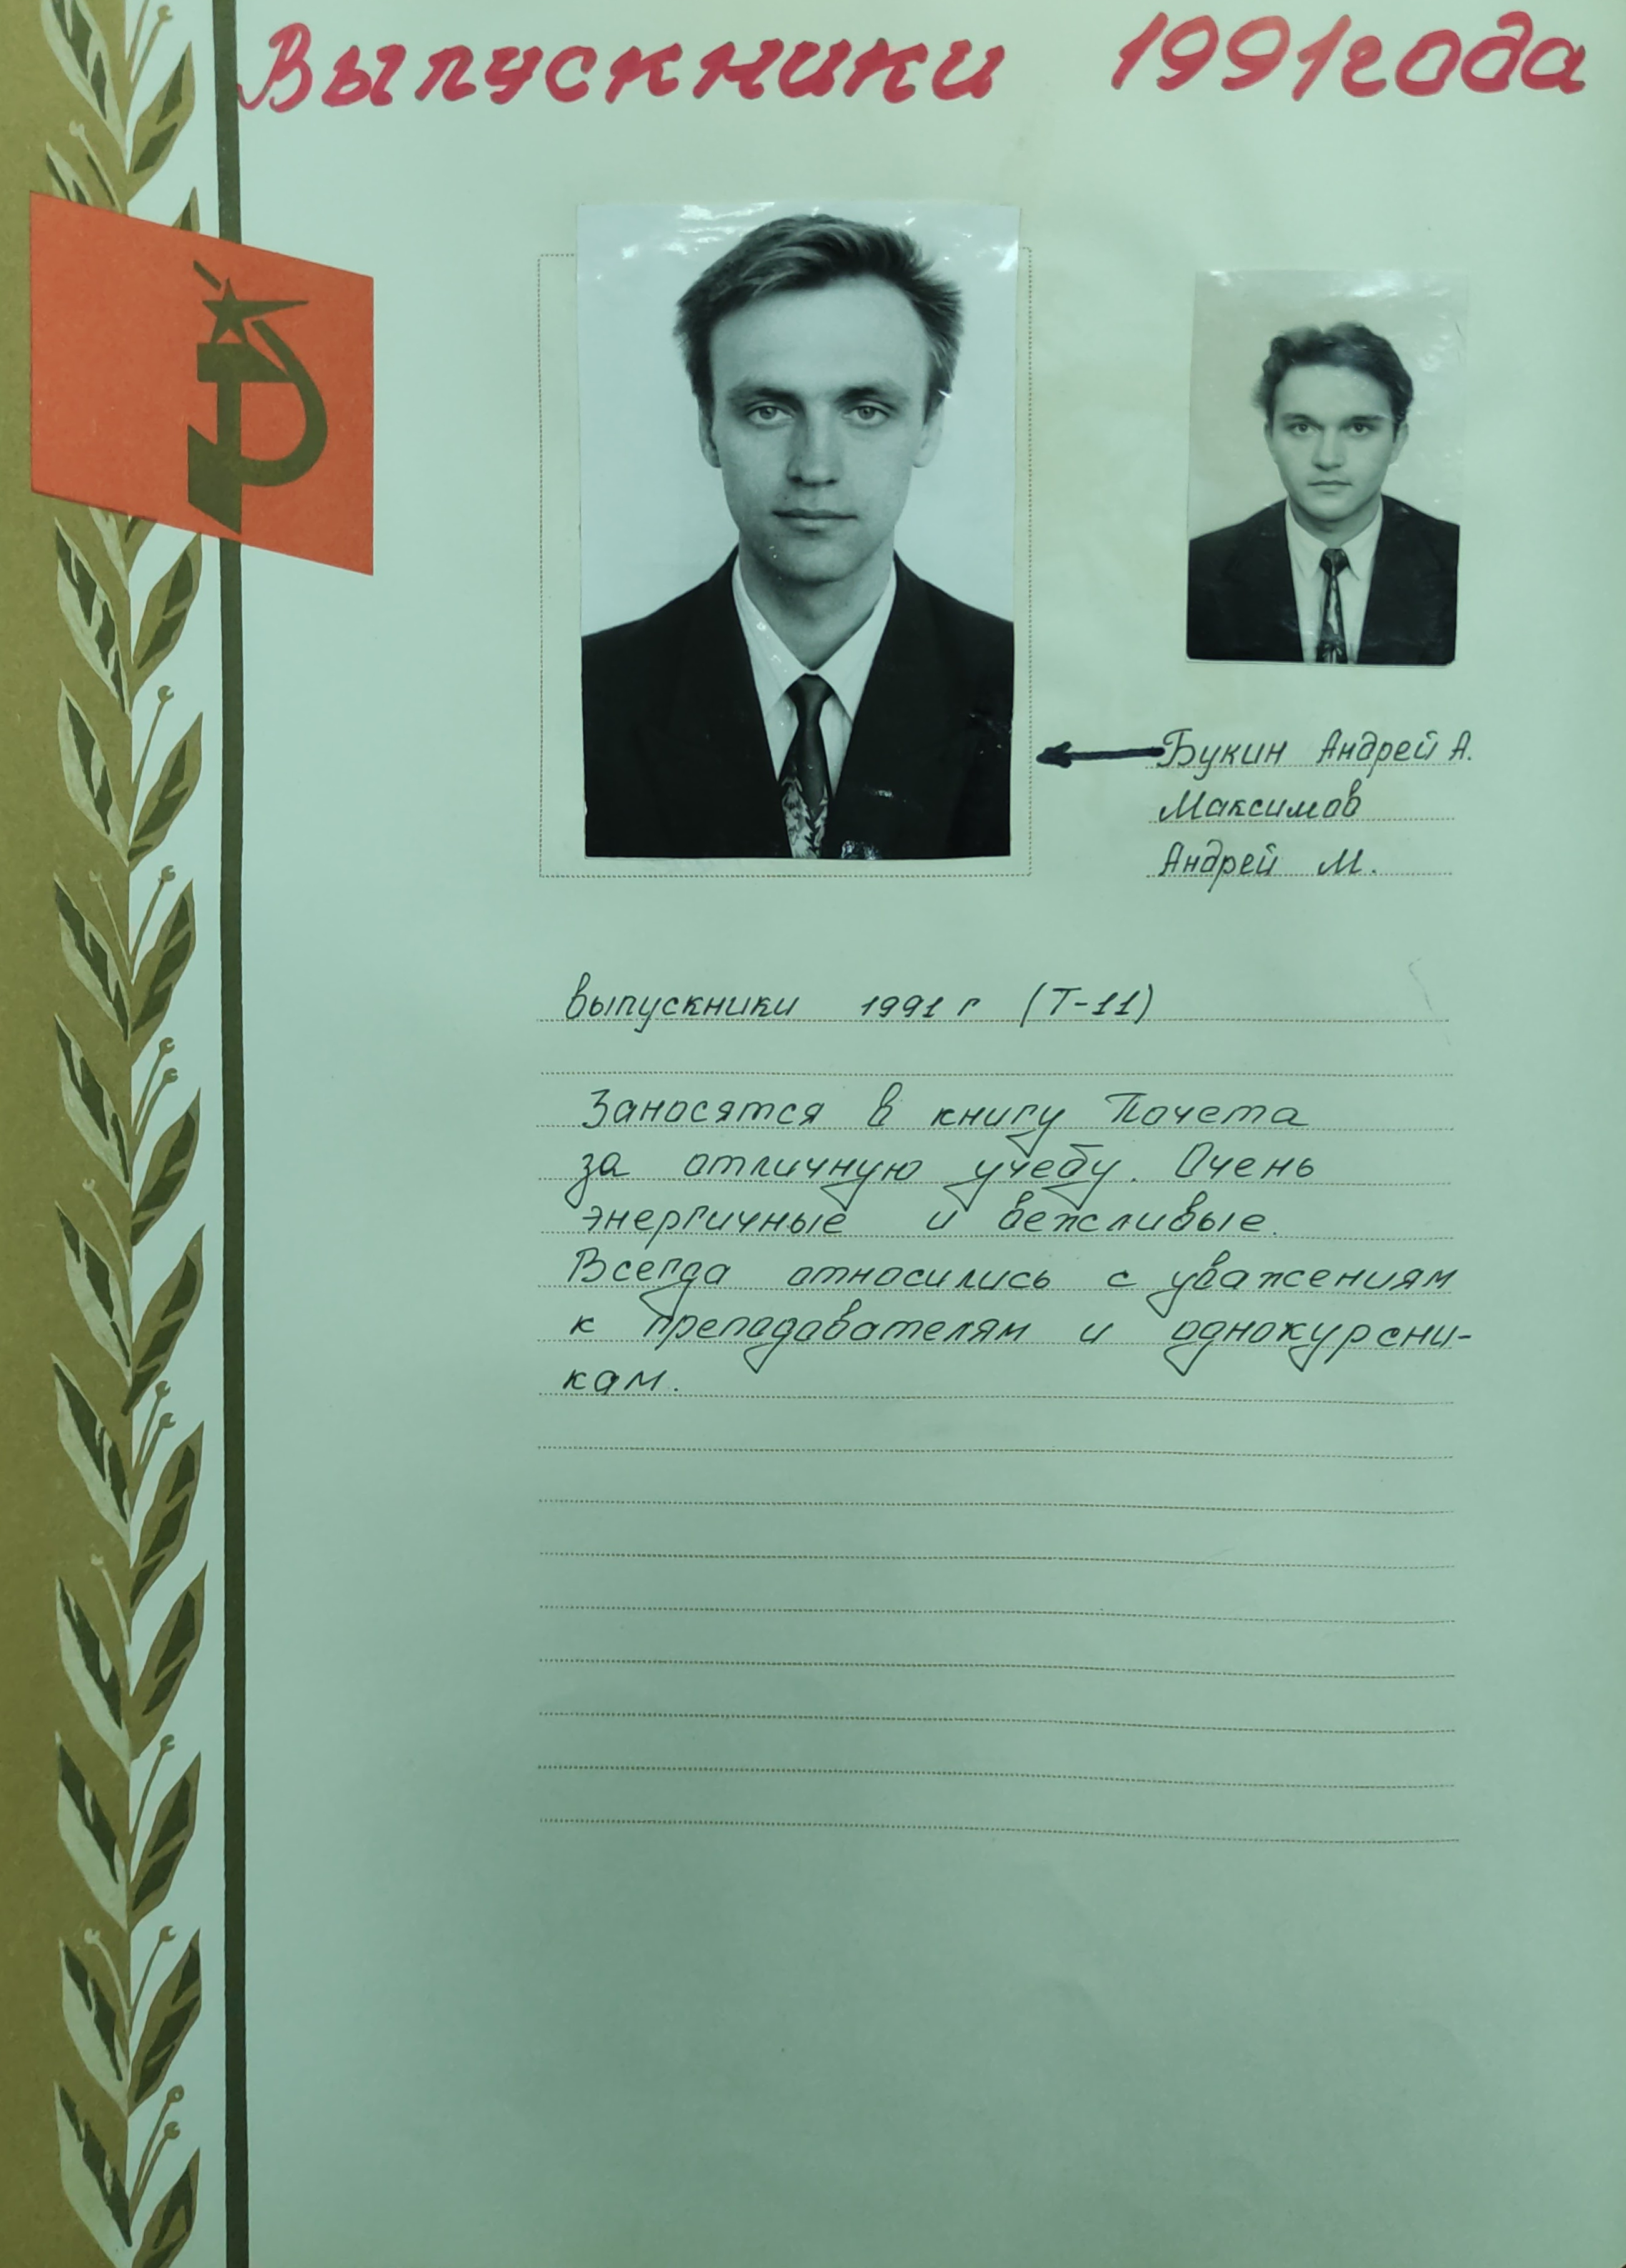 Выпускники 1991года
Букин Андрей А.
Максимов
Андрей М.
выпускники 1991 г (Т-11)
Заносятся в книгу Почета
за отличную учебу. Очень
энергичные и вежливые.
Всегда относились с уважениям
к преподавателям и однокурсни-
кам.